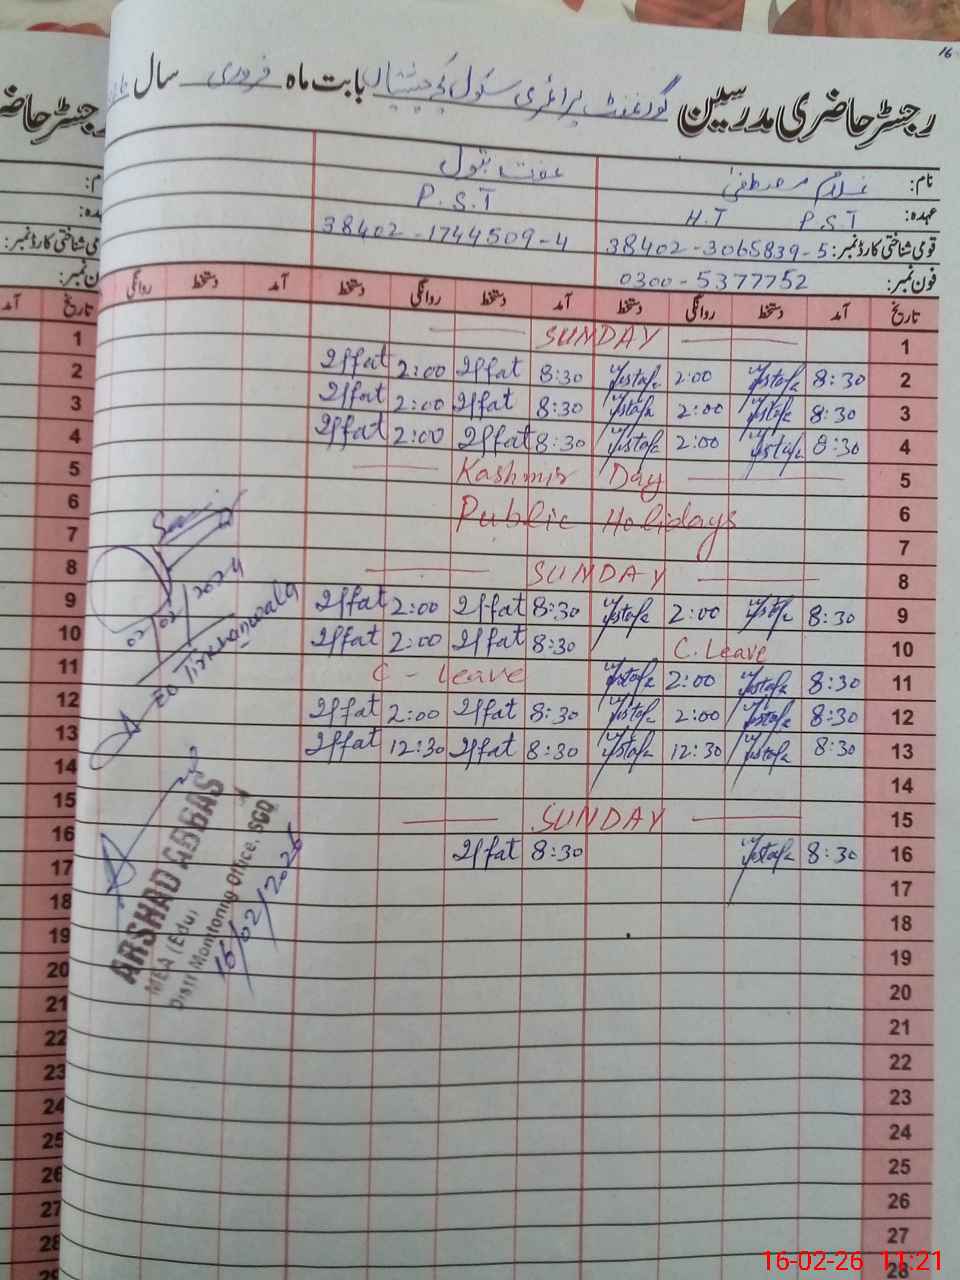 16
رجسٹر حاضری مدرسین گورنمنٹ پرائمری سکول بابت ماہ فروری سال
نام: غلام مصطفیٰ عفت بتول
عہدہ: P.S.T H.T P.S.T
قومی شناختی کارڈ نمبر: 38402-3065839-5 38402-1744509-4
فون نمبر: 0300-5377752
تاریخ آمد دستخط روانگی دستخط آمد دستخط روانگی دستخط آمد دستخط روانگی تاریخ
1 SUNDAY 1
2 Iffat 2:00 Iffat 8:30 Mustafa 2:00 Mustafa 8:30 2
3 Iffat 2:00 Iffat 8:30 Mustafa 2:00 Mustafa 8:30 3
4 Iffat 2:00 Iffat 8:30 Mustafa 2:00 Mustafa 8:30 4
5 Kashmir Day 5
6 Public Holidays 6
7 7
8 SUNDAY 8
9 Iffat 2:00 Iffat 8:30 Mustafa 2:00 Mustafa 8:30 9
10 Iffat 2:00 Iffat 8:30 C. Leave 10
11 C - Leave Mustafa 2:00 Mustafa 8:30 11
12 Iffat 2:00 Iffat 8:30 Mustafa 2:00 Mustafa 8:30 12
13 Iffat 12:30 Iffat 8:30 Mustafa 12:30 Mustafa 8:30 13
14 14
15 SUNDAY 15
16 Iffat 8:30 Mustafa 8:30 16
17 17
18 18
19 19
20 20
21 21
22 22
23 23
24 24
25 25
26 26
27 27
28 28
29
ARSHAD ABBAS
MEA (Edu)
Distt Monitoring Office, SGD
16/02/2026
رجسٹر حاضری
تاریخ
آمد
16-02-26 11:21